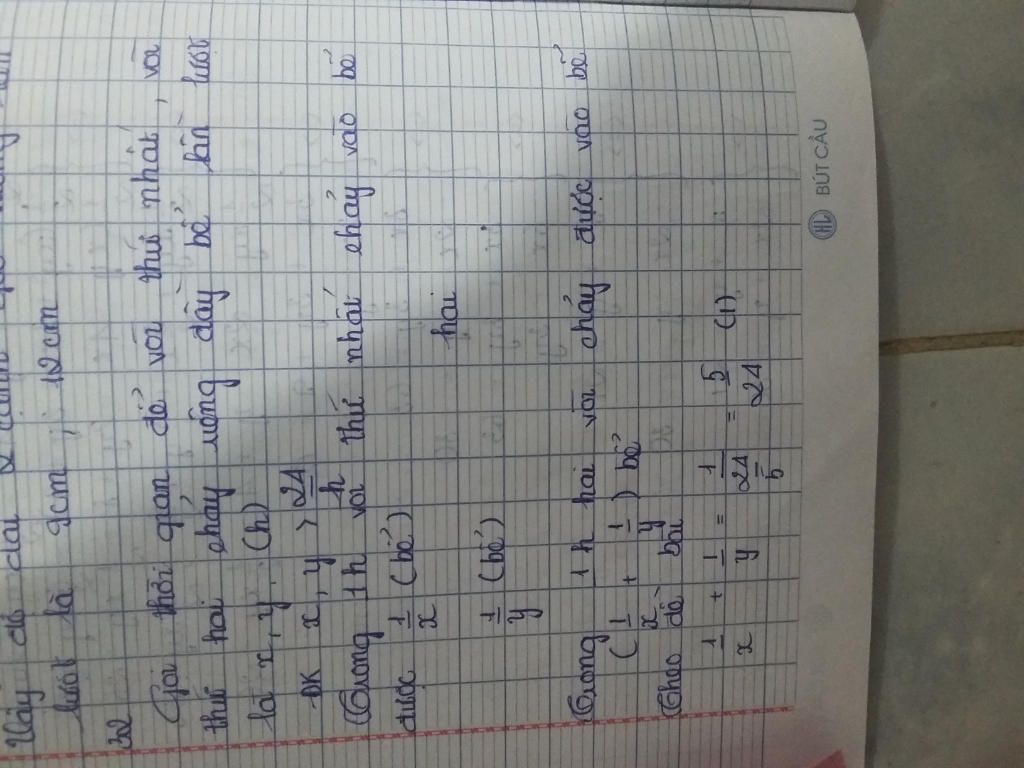 Vậy độ dài 2 cạnh góc vuông
lượt là 9cm ; 12cm
22
Gọi thời gian để vòi thứ nhất, vòi
thứ hai chảy riêng đầy bể lần lượt
là x, y (h)
ĐK x, y > 24/5 h
Trong 1h vòi thứ nhất chảy vào bể
được 1/x (bể)
hai
1/y (bể)
Trong 1h hai vòi chảy được vào bể
(1/x + 1/y) bể
Theo đề bài
1/x + 1/y = 1/(24/5) = 5/24 (1)
HL BÚT CÂU